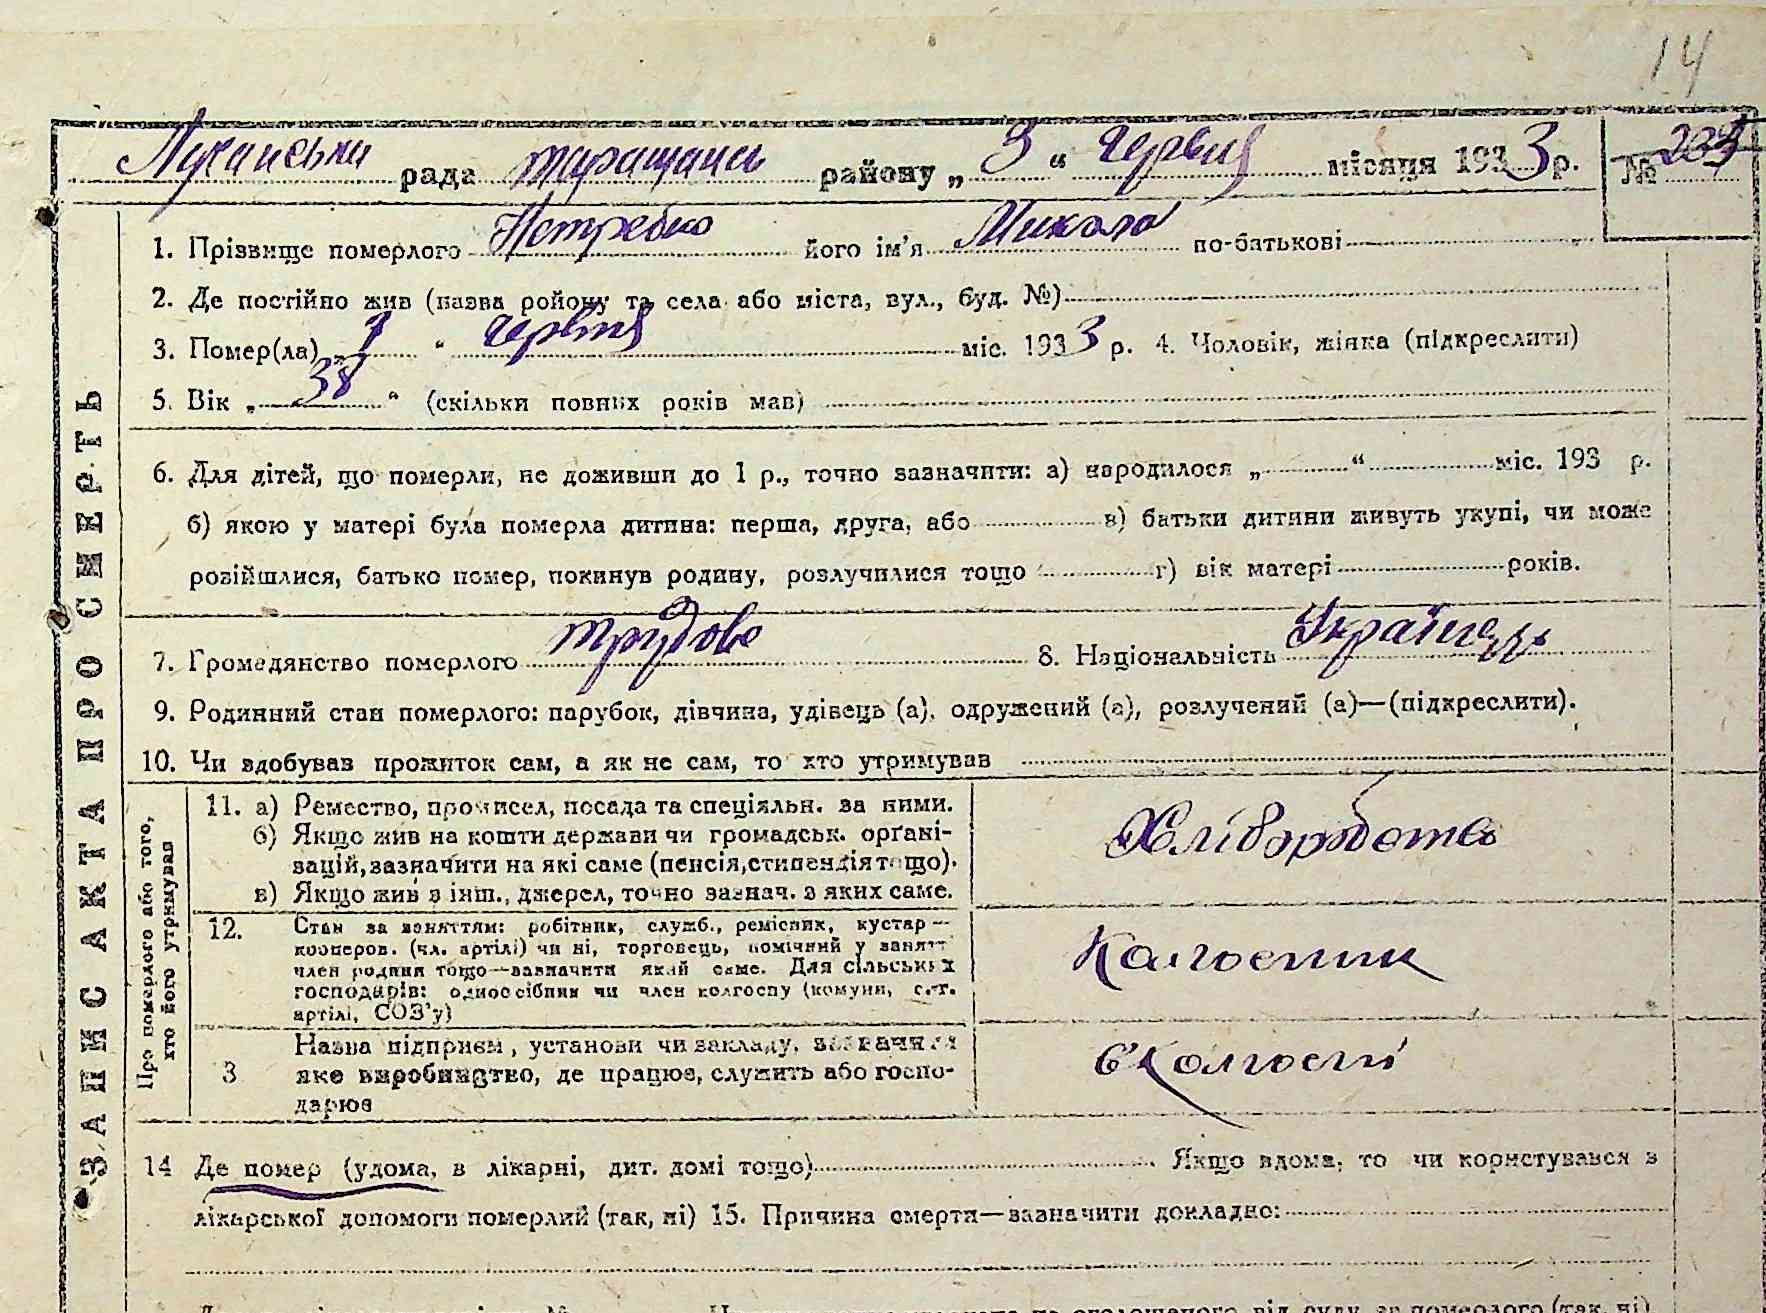 14
Луканська рада таращансь району „ 3 “ червня місяця 1933 р. №
1. Прізвище померлого Нетребко його ім'я Микола по-батькові
2. Де постійно жив (назва ройону та села або міста, вул., буд. №)
3. Помер(ла) „ “ червня міс. 1933 р. 4. Чоловік, жінка (підкреслити)
5. Вік „ 38 “ (скільки повних років мав)
6. Для дітей, що померли, не доживши до 1 р., точно зазначити: а) народилося „ “ міс. 193 р.
б) якою у матері була померла дитина: перша, друга, або в) батьки дитини живуть укупі, чи може
розійшлися, батько помер, покинув родину, розлучилися тощо г) вік матері років.
7. Громадянство померлого трудове 8. Національність Українець
9. Родинний стан померлого: парубок, дівчина, удівець (а), одружений (а), розлучений (а)—(підкреслити).
10. Чи здобував прожиток сам, а як не сам, то хто утримував
ЗАПИС АКТА ПРО СМЕРТЬ
Про померлого або того,
хто його утримував
11. а) Ремество, промисел, посада та спеціяльн. за ними.
б) Якщо жив на кошти держави чи громадськ. органі-
зацій, зазначити на які саме (пенсія, стипендія тощо).
в) Якщо жив з інш., джерел, точно зазнач. з яких саме.
Хліборобство
12. Стан за заняттям: робітник, служб., ремісник, кустар—
кооперов. (чл. артілі) чи ні, торговець, помічний у занятт
член родини тощо—зазначити який саме. Для сільських
господарів: одноосібник чи член колгоспу (комуни, с.-г.
артілі, СОЗ'у)
Колгоспник
3 Назва підприєм, установи чи закладу, зазначити
яке виробництво, де працює, служить або госпо-
дарює
в Колгоспі
14 Де помер (удома, в лікарні, дит. домі тощо) Якщо вдома, то чи користувався з
лікарської допомоги померлий (так, ні) 15. Причина смерти—зазначити докладно: